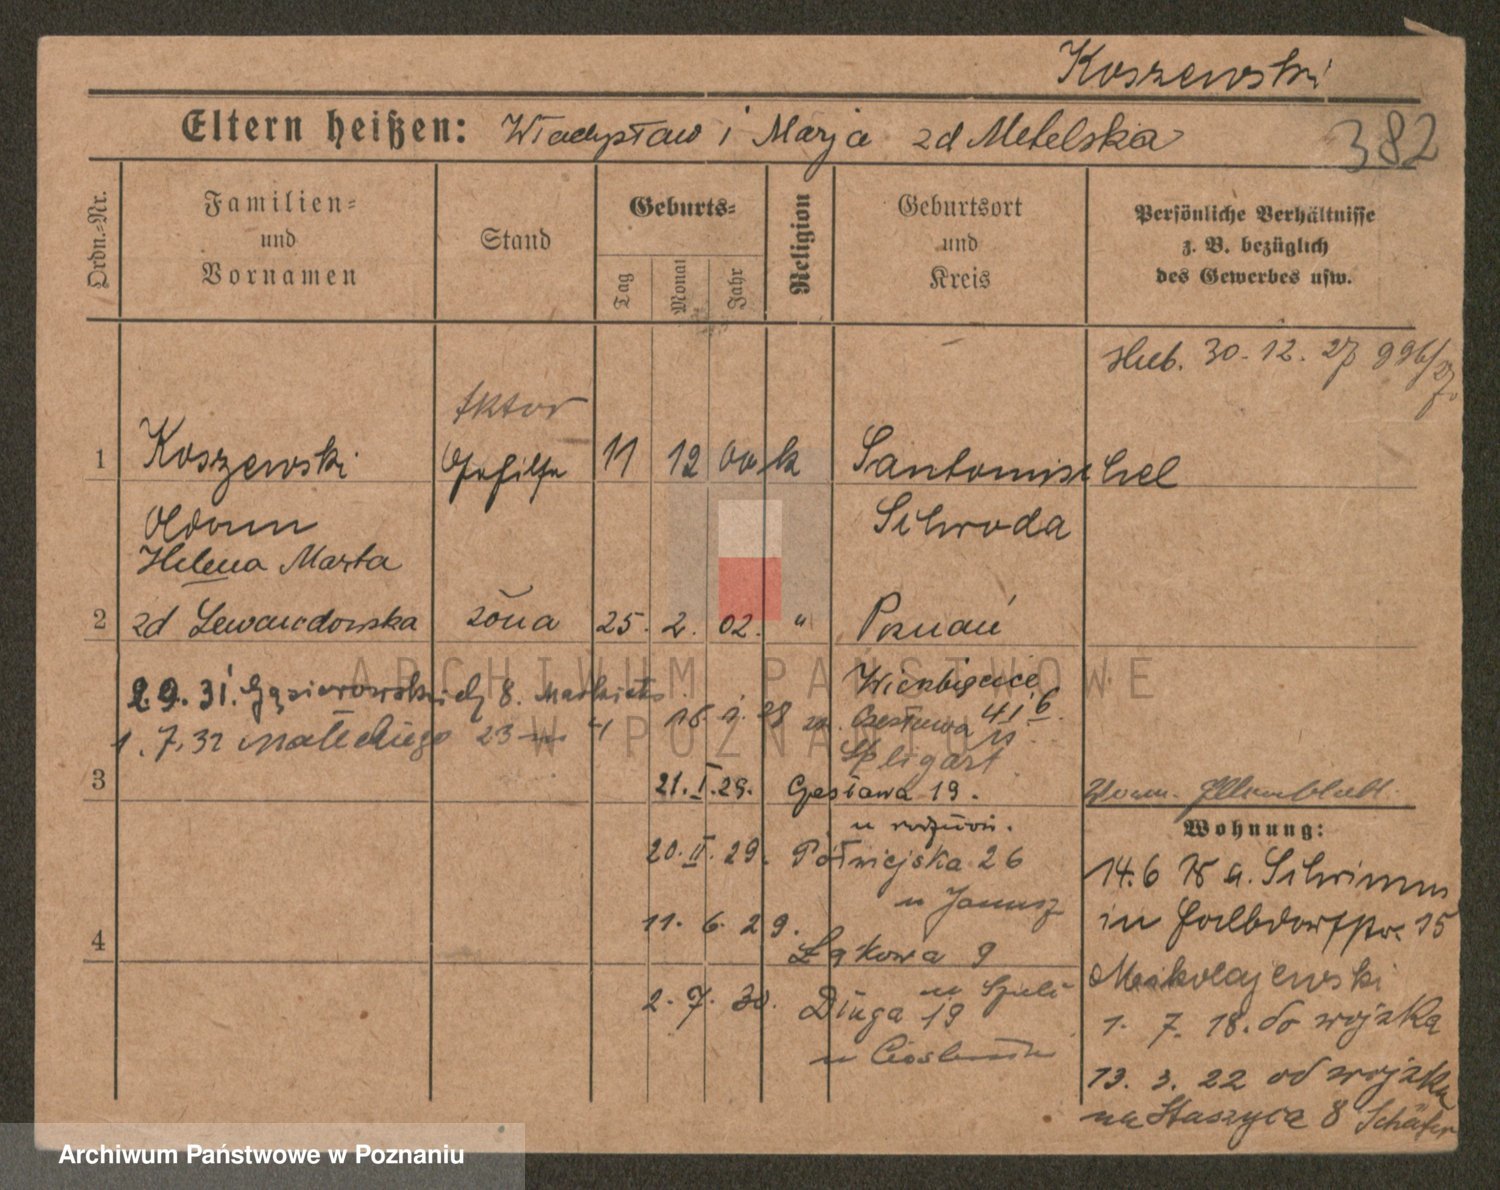 Koszewski
Eltern heißen: Władysław i Marja zd Metelska
382
Ordn.-Nr.
Familien- und Vornamen
Stand
Geburts-
Tag
Monat
Jahr
Religion
Geburtsort und Kreis
Persönliche Verhältnisse
z. B. bezüglich
des Gewerbes usw.
30. 12. 27 996/27
1 Koszewski Gehilfe 11 12 00 k Santomischel
Schroda
Helena Marta
2 zd Lewandowska żona 25. 2. 02. " Poznań
Wierzbięcice
2.9.31. Gąsiorowskich 8.
1.7.32 Małeckiego 23
16. 9. 28
3
21. I. 29. 19.
20. II. 29. Półwiejska 26
u Janusz
4
11. 6. 29. Łąkowa 9
2. 7. 30. Długa 19
Wohnung:
14.6 18 a. Schrimm
in 15
Mikołajewski
1. 7. 18. do wojska
13. 3. 22 od wojska
na Staszyca 8 Schäfer
ARCHIWUM PAŃSTWOWE
W POZNANIU
Archiwum Państwowe w Poznaniu